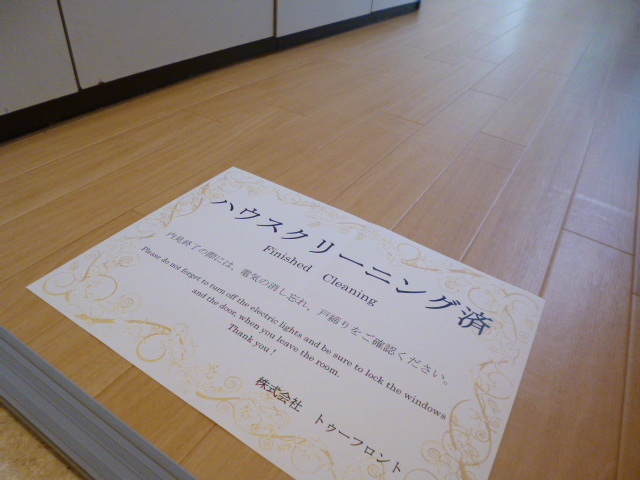 ハウスクリーニング済
Finished Cleaning
内見終了の際には、電気の消し忘れ、戸締りをご確認ください。
Please do not forget to turn off the electric lights and be sure to lock the windows
and the door, when you leave the room.
Thank you !
株式会社 トゥーフロント